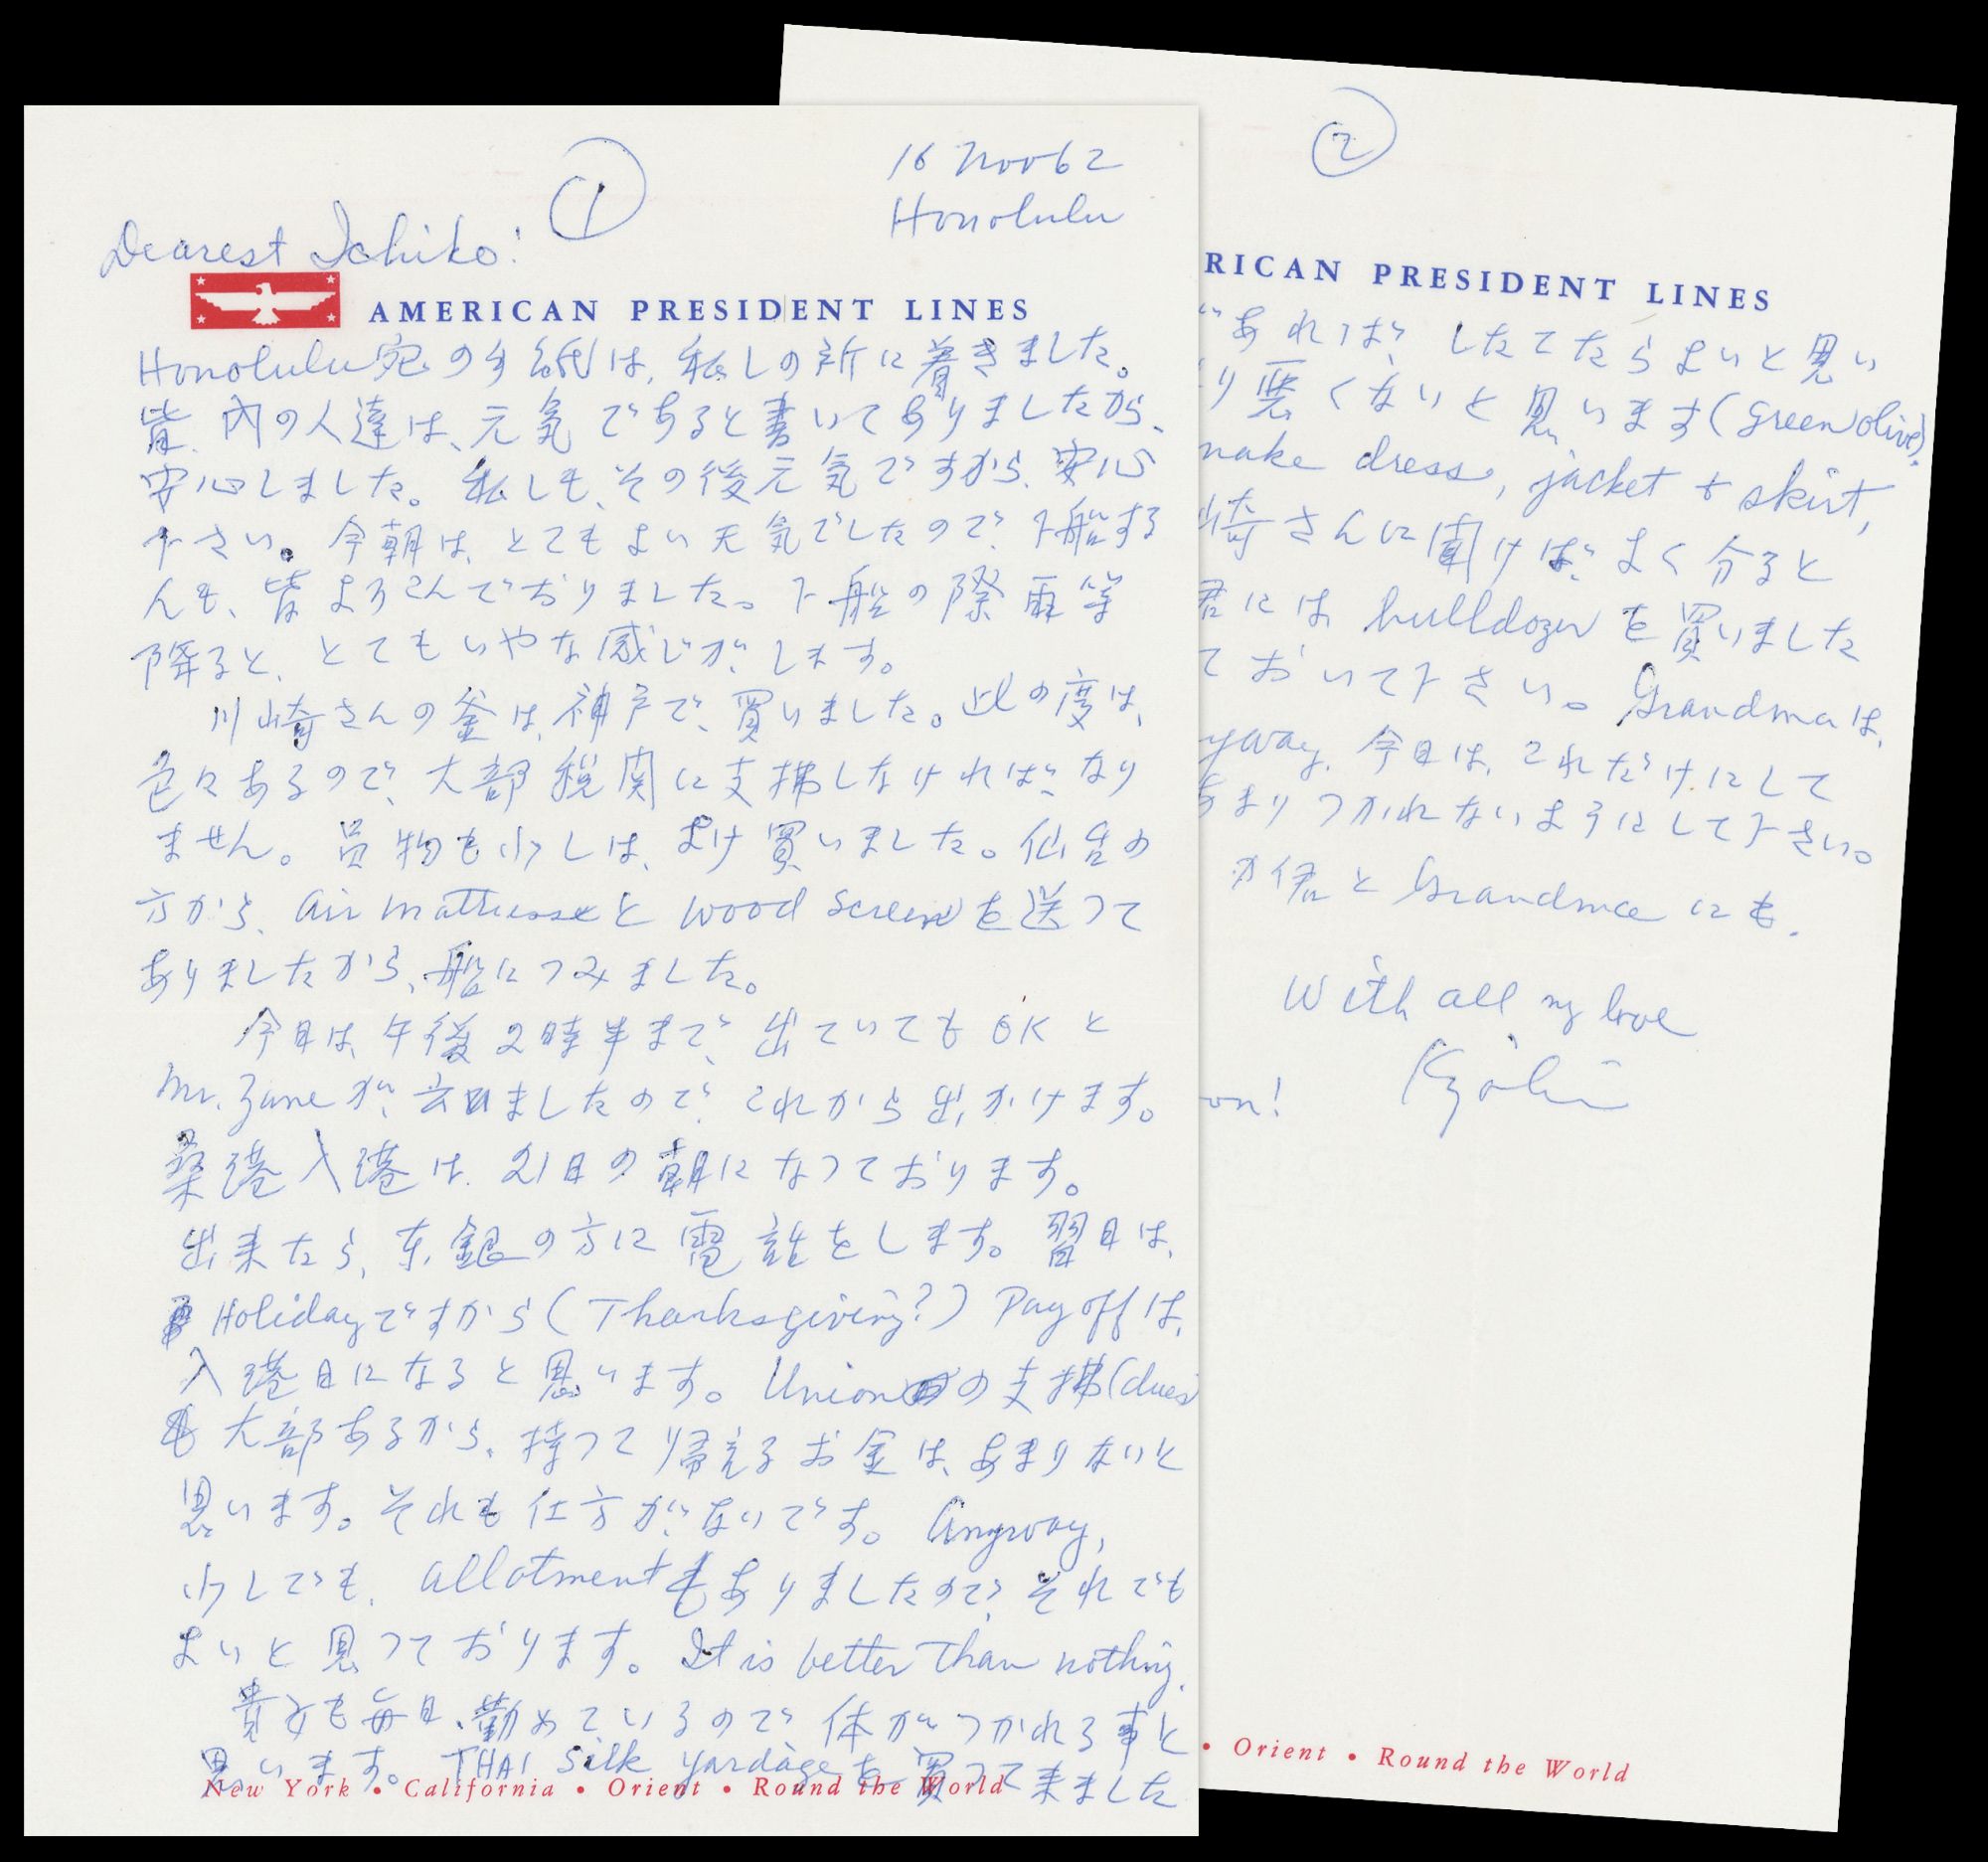 ①
16 Nov 62
Honolulu
Dearest Ichiko!
AMERICAN PRESIDENT LINES
Honolulu宛の手紙は、私しの所に着きました。
皆、内の人達は、元気であると書いてありましたから、
安心しました。私しも、その後元気ですから、安心
下さい。今朝は、とてもよい天気でしたので、下船する
人も、皆よろこんでおりました。下船の際雨等
降ると、とてもいやな感じがします。
川崎さんの釜は、神戸で、買いました。此の度は、
色々あるので、大部税関に支拂しなければなり
ません。品物も少しは、よけ買いました。仙台の
方から、air mattressと wood screenを送って
ありましたから、船につみました。
今日は、午後2時半まで、出ていても OK と
Mr. Zaneが、云いましたので、これから出かけます。
桑港入港は、21日の朝になっております。
出来たら、東銀の方に電話をします。翌日は、
Holidayですから(Thanksgiving?) Pay offは、
入港日になると思います。Unionの支拂(dues
も大部あるから、持って帰えるお金は、あまりないと
思います。それも仕方がないです。Anyway,
少しでも、allotmentもありましたので、それでも
よいと思っております。It is better than nothing.
貴女も毎日、勤めているので体がつかれる事と
思います。THAI silk yardageを買って来ました
New York • California • Orient • Round the World
②
RICAN PRESIDENT LINES
があれば、したてたらよいと思い
り悪くないと思います(green olive).
make dress, jacket + skirt,
崎さんに聞けば、よく分ると
君には bulldozer を買いました
ておいて下さい。Grandmaは、
yway, 今日は、これだけにして
あまりつかれないようにして下さい。
君と Grandma にも.
With all my love
Kyoichi
on!
• Orient • Round the World